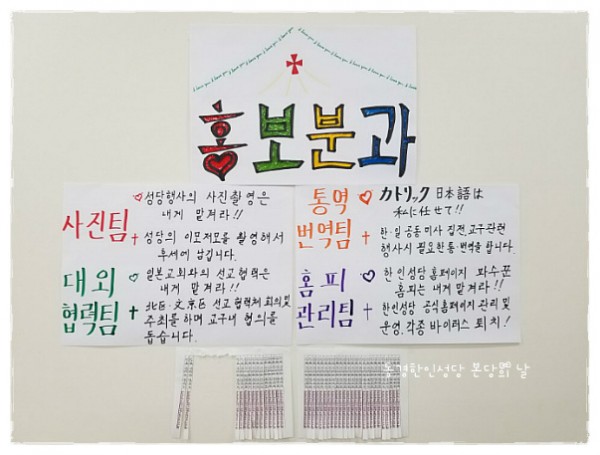 홍보분과
사진팀
♡ 성당행사의 사진촬영은
내게 맡겨라!!
+ 성당의 이모저모를 촬영해서
후세에 남깁니다.
대외
협력팀
♡ 일본교회와의 선교협력은
내게 맡겨라!!
+ 北区·文京区 선교협력체 회의및
주최를 하며 교구내 협의를
돕습니다.
통역
번역팀
♡ カトリック 日本語は
私に任せて!!
+ 한·일 공동미사 집전, 교구관련
행사시 필요한 통·번역을 합니다.
홈피
관리팀
♡ 한인성당 홈페이지 파수꾼
홈피는 내게 맡겨라!!
+ 한인성당 공식홈페이지 관리 및
운영. 각종 바이러스 퇴치!
동경한인성당 본당의 날